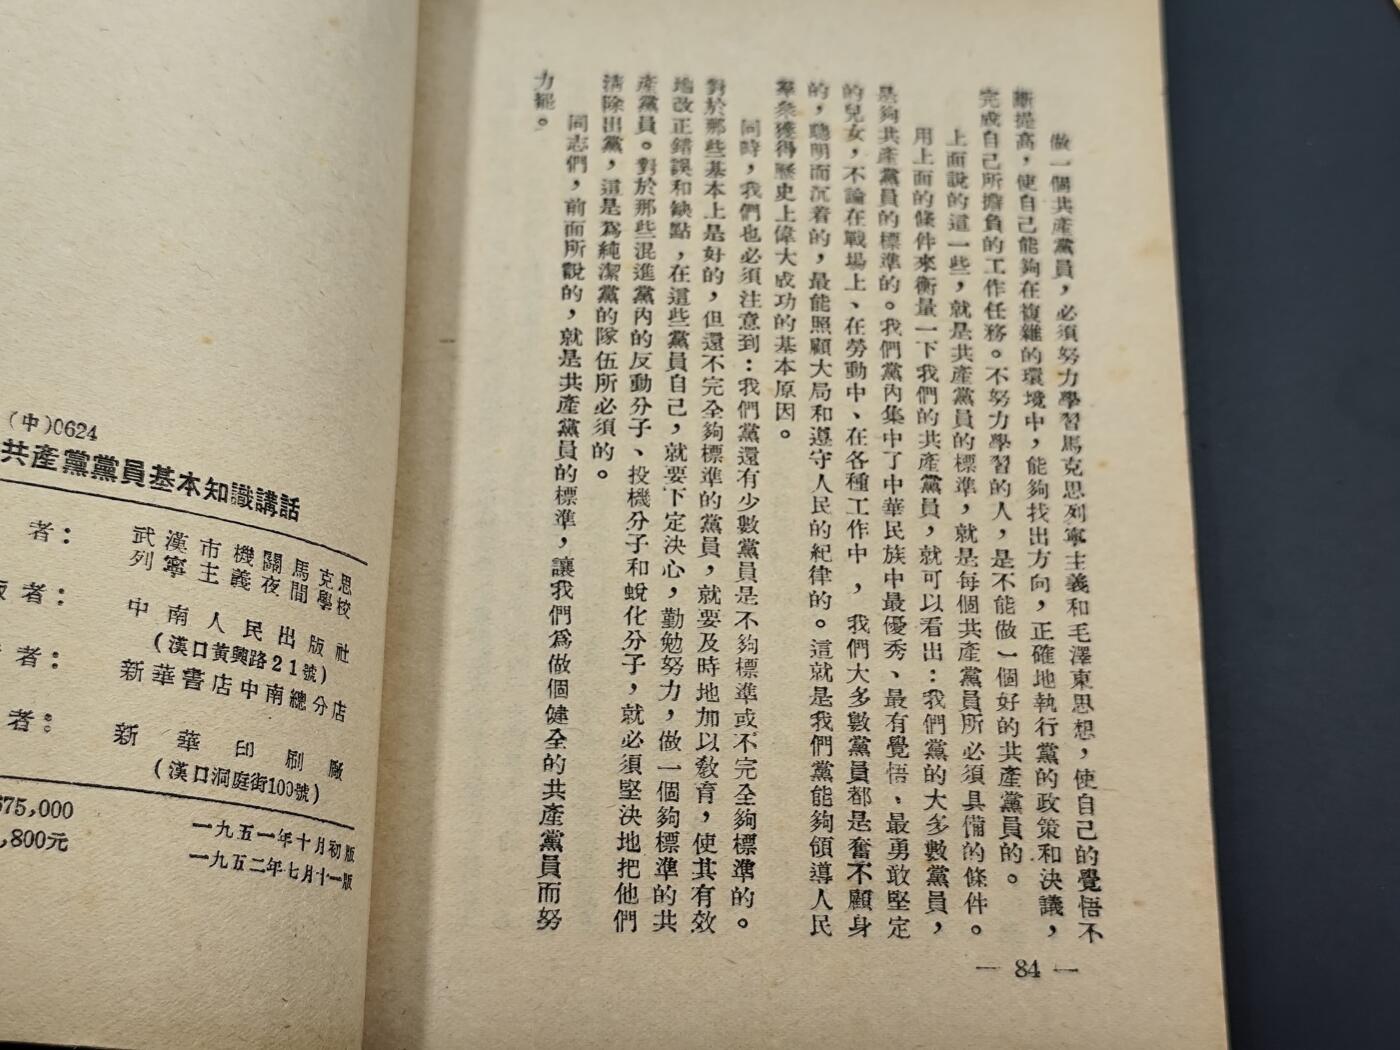 做一個共產黨員，必須努力學習馬克思列寧主義和毛澤東思想，使自己的覺悟不
斷提高，使自己能夠在複雜的環境中，能夠找出方向，正確地執行黨的政策和決議，
完成自己所擔負的工作任務。不努力學習的人，是不能做一個好的共產黨員的。
上面說的這一些，就是共產黨員的標準，就是每個共產黨員所必須具備的條件。
用上面的條件來衡量一下我們的共產黨員，就可以看出：我們黨的大多數黨員，
是夠共產黨員的標準的。我們黨內集中了中華民族中最優秀、最有覺悟、最勇敢堅定
的兒女，不論在戰場上、在勞動中、在各種工作中，我們大多數黨員都是奮不顧身
的，聰明而沉着的，最能照顧大局和遵守人民的紀律的。這就是我們黨能夠領導人民
羣衆獲得歷史上偉大成功的基本原因。
同時，我們也必須注意到：我們黨還有少數黨員是不夠標準或不完全夠標準的。
對於那些基本上是好的，但還不完全夠標準的黨員，就要及時地加以敎育，使其有效
地改正錯誤和缺點，在這些黨員自己，就要下定決心，勤勉努力，做一個夠標準的共
產黨員。對於那些混進黨內的反動分子、投機分子和蛻化分子，就必須堅決地把他們
淸除出黨，這是爲純潔黨的隊伍所必須的。
同志們，前面所說的，就是共產黨員的標準，讓我們爲做個健全的共產黨員而努
力罷。
— 84 —
(中)0624
共產黨黨員基本知識講話
者：武漢市機關馬克思
列寧主義夜間學校
版者：中南人民出版社
(漢口黃興路21號)
者：新華書店中南總分店
者：新華印刷廠
(漢口洞庭街100號)
675,000
,800元
一九五一年十月初版
一九五二年七月十一版